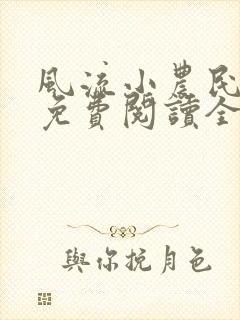 風流小農民
免費閱讀全
與你挽月色